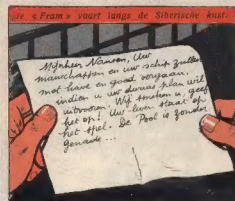 de « Fram » vaart langs de Siberische kust.
Mijnheer Nansen, Uw
manschappen en uw schip zullen
met have en goed vergaan,
indien u uw dwaas plan wil
uitvoeren. Wij smeken u, geef
het op! Uw leven staat op
het spel. De Pool is zonder
genade...